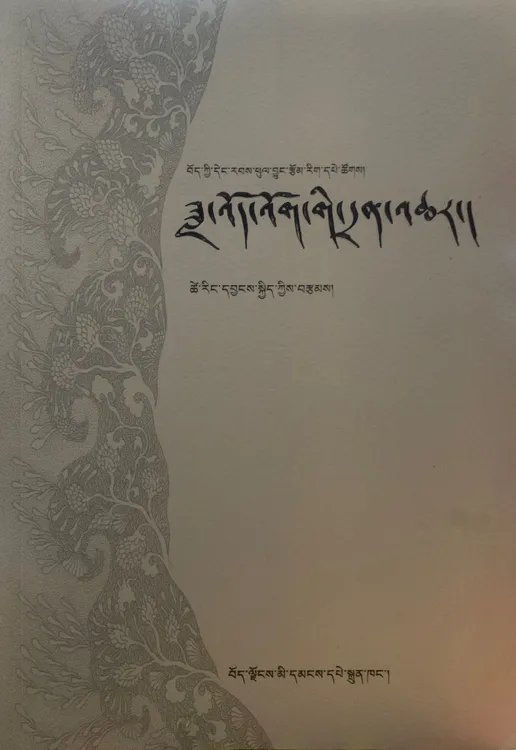 བོད་ཀྱི་དེང་རབས་ཕུལ་བྱུང་རྩོམ་རིག་དཔེ་ཚོགས།
ཟླ་འོད་འོག་གི་
ཚེ་རིང་དབྱངས་སྐྱིད་ཀྱིས་བརྩམས།
བོད་ལྗོངས་མི་དམངས་དཔེ་སྐྲུན་ཁང་།